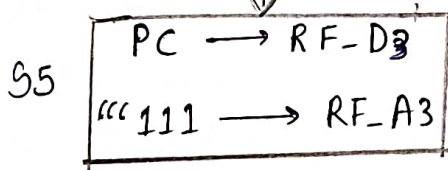 S5
PC → RF_D3
"111 → RF_A3